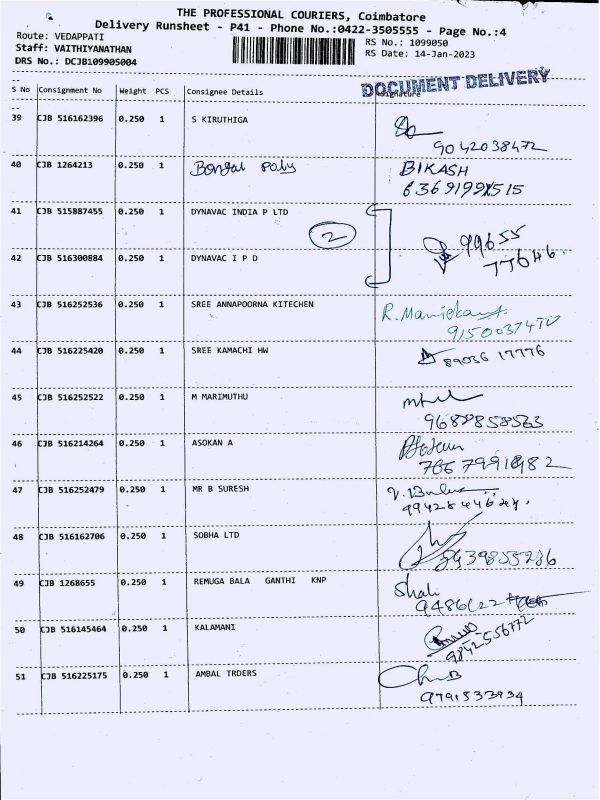 THE PROFESSIONAL COURIERS, Coimbatore
Delivery Runsheet - P41 - Phone No.:0422-3505555 - Page No.:4
Route: VEDAPPATI
RS No.: 1099050
Staff: VAITHIYANATHAN
RS Date: 14-Jan-2023
DRS No.: DCJB109905004
DOCUMENT DELIVERY
S No Consignment No Weight PCS Consignee Details Signature
39 CJB 516162396 0.250 1 S KIRUTHIGA
9042038472
40 CJB 1264213 0.250 1 BIKASH
41 CJB 515887455 0.250 1 DYNAVAC INDIA P LTD
2 99655
42 CJB 516300884 0.250 1 DYNAVAC I P D
77646
43 CJB 516252536 0.250 1 SREE ANNAPOORNA KITECHEN
44 CJB 516225420 0.250 1 SREE KAMACHI HW 89036 17776
45 CJB 516252522 0.250 1 M MARIMUTHU
46 CJB 516214264 0.250 1 ASOKAN A
47 CJB 516252479 0.250 1 MR B SURESH
48 CJB 516162706 0.250 1 SOBHA LTD
49 CJB 1268655 0.250 1 REMUGA BALA GANTHI KNP Shali
50 CJB 516145464 0.250 1 KALAMANI
9842556772
51 CJB 516225175 0.250 1 AMBAL TRDERS
9791533934